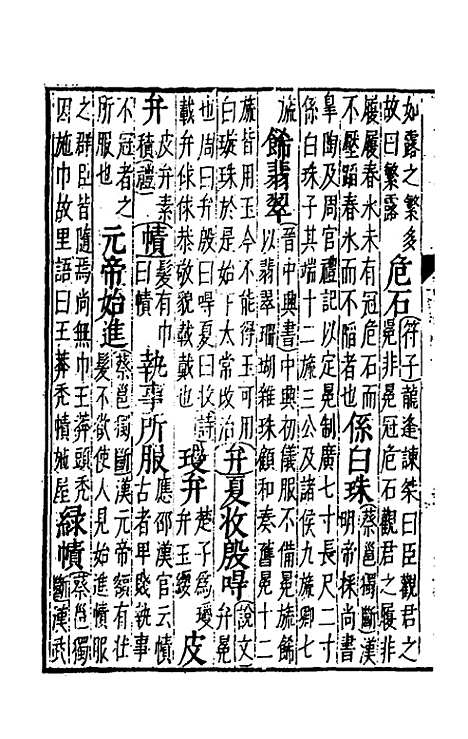 如露之繁多
故曰繁露
危石
符子龍逢諫桀曰臣觀君之
冕非冕冠危石觀君之履非
履履春水未有冠危石而
不壓蹈春水而不陷者也
係白珠
蔡邕獨斷漢
明帝採尚書
皐陶及周官禮記以定冕制廣七寸長尺二寸
係白珠子其端十二旒三公及諸侯九旒卿七
旒
飾翡翠
晉中興書中興初儀服不備冕旒飾
以翡翠珊瑚雜珠顧和奏舊冕十二
旒皆用玉今不能得玉可用
白璇珠於是始下太常改治
弁夏收殷冔
說文
弁冕
也周曰弁殷曰冔夏曰收詩
載弁俅俅恭敬貌載戴也
瓊弁
楚子為瓊
弁玉纓
皮
弁
皮弁素
積禮
幘
髮有巾
曰幘
執事所服
應邵漢官云幘
古者卑賤執事
不冠者之
所服也
元帝始進
蔡邕獨斷漢元帝額有壯
髮不欲使人見始進幘服
之群臣皆隨焉尚無巾王莽頭禿
因施巾故里語曰王莽禿幘施屋
綠幘
蔡邕獨
斷漢武